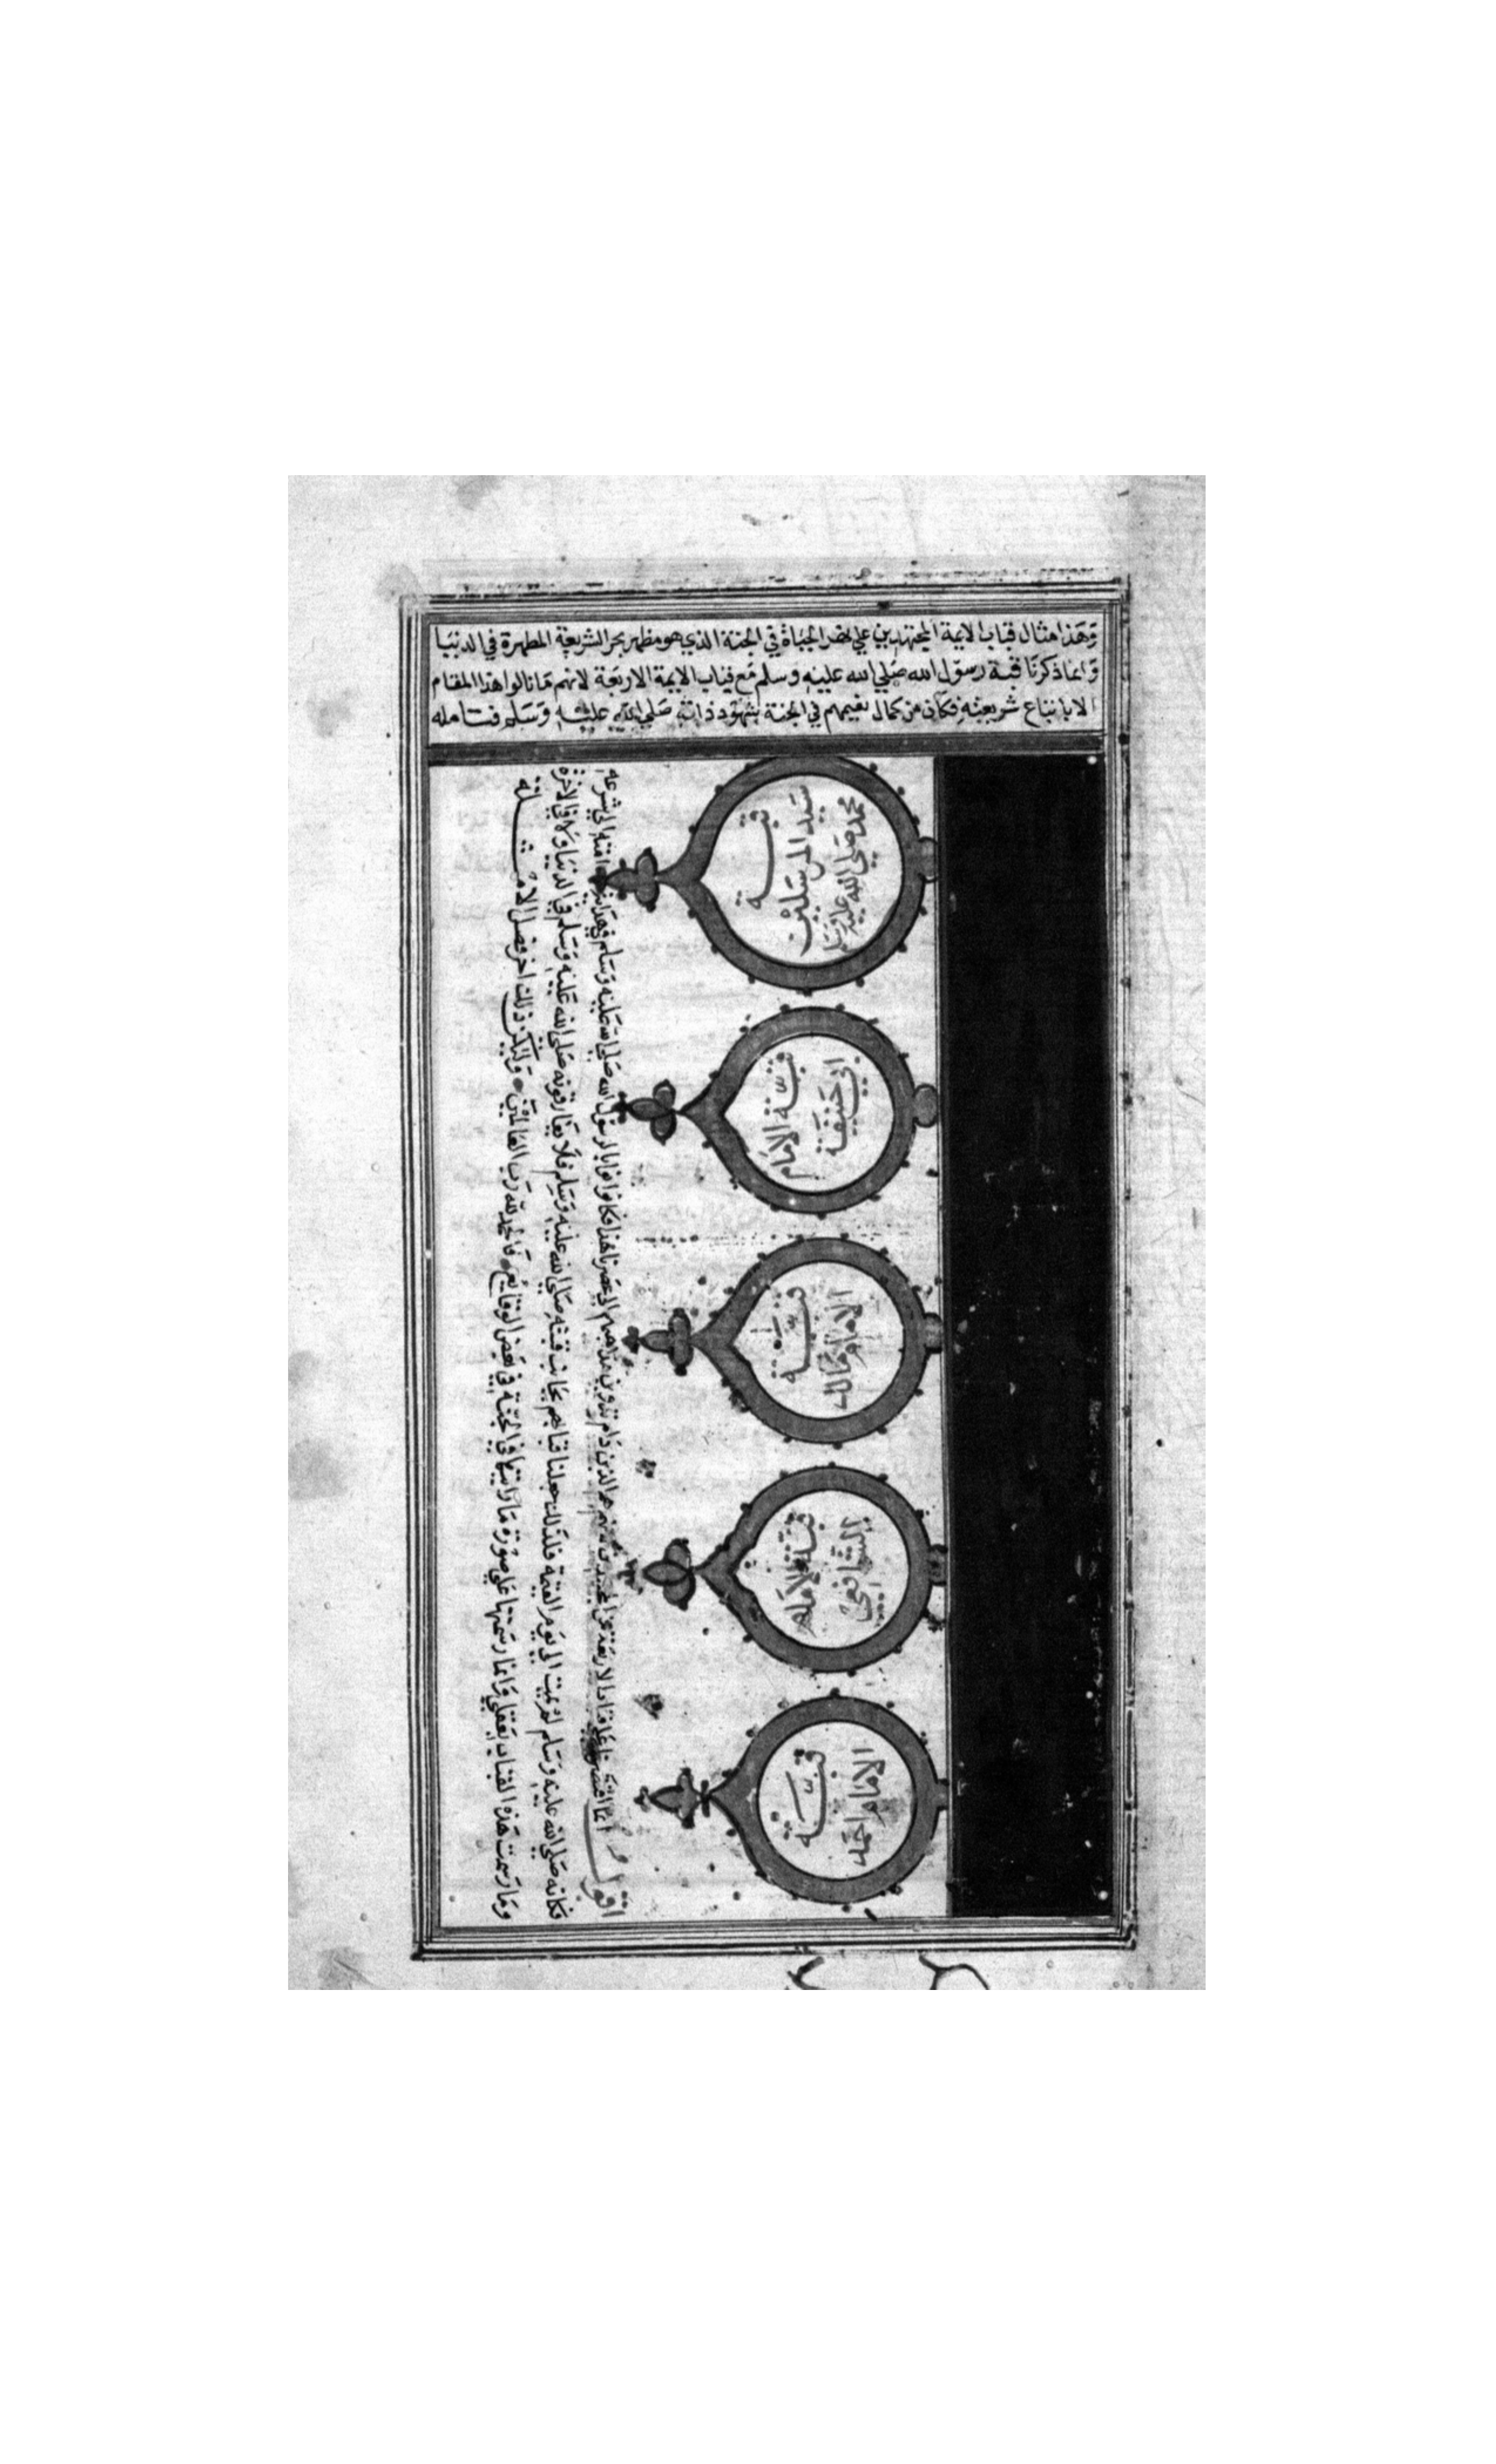 وَهَذا مثال قباب الايمة المجتهدين علي نهر الحياة في الجنة الذي هو مظهر بحر الشريعة المطهرة في الدنيا
وَانما ذكرنا قبة رسول الله صَلي الله عليه وسلم مَع قباب الايمة الاربَعة لانهم مَا نالوا هذا المقام
الا باتباع شريعته فكان من كمال نعيمهم في الجنة بشهود ذاته صَلي الله عليه وَسَلم فتامله
قبة
سَيد المرسَلين
محمد صَلي الله عليه وسلم
قبة الامام
ابي حَنيفة
قبة
الامام مالك
قبة الامام
الشافعي
قبة
الامام احمد
انما اقتصرنا عَلي قباب الاربعَة من المجتهدين لانهم هم الذين دَام تدوين مذاهبهم الي عَصرنا هَذا فكانوا نوابا لرسول الله صَلي الله عَليه وَسَلم في هداية امته الي شرعه
فكانه صَلي الله عليه وَسَلم لم يمت الي يَوم القيمة فلذلك جعلنا قبابهم بجانب قبته صَلي الله عليه وَسَلم فلا يفارقونه صَلي الله عَليه وَسَلم في الدنيا وَلا في الاخرة
ومَا رَسمت هَذه القباب بعَقلي وَانما رسَمتها عَلي صورة مَا رَايتها في الجنة في بَعض الوقايع فالحمد لله رَب العَالمين وَليكن ذلك اخر فصل الامثلة